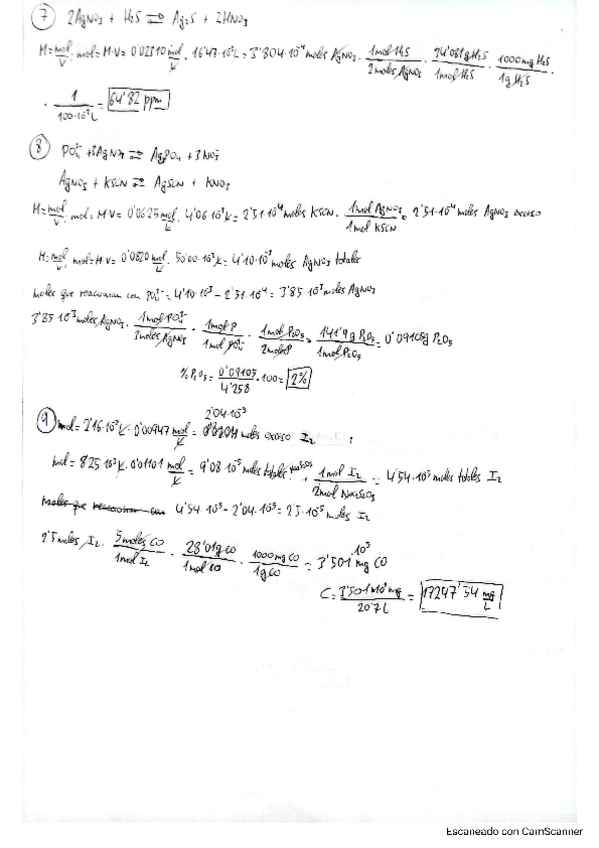 7 2AgNO3 + H2S ⇌ Ag2S + 2HNO3
M = mol/V; mol = M·V = 0'02310 mol/L · 16'47·10⁻³L = 3'804·10⁻⁴ moles AgNO3 · 1mol H2S/2moles AgNO3 · 34'081g H2S/1mol H2S · 1000mg H2S/1g H2S ·
· 1/100·10⁻³L = 64'82 ppm
8 PO4³⁻ + 3AgNO3 ⇌ Ag3PO4 + 3NO3⁻
AgNO3 + KSCN ⇌ AgSCN + KNO3
M = mol/V; mol = M·V = 0'0625 mol/L · 4'06·10⁻³L = 2'51·10⁻⁴ moles KSCN · 1mol AgNO3/1mol KSCN = 2'51·10⁻⁴ moles AgNO3 exceso
M = mol/V; mol = M·V = 0'0820 mol/L · 50'00·10⁻³L = 4'10·10⁻³ moles AgNO3 totales
moles que reaccionan con PO4³⁻ = 4'10·10⁻³ - 2'51·10⁻⁴ = 3'85·10⁻³ moles AgNO3
3'85·10⁻³ moles AgNO3 · 1mol PO4³⁻/3moles AgNO3 · 1mol P/1mol PO4³⁻ · 1mol P2O5/2mol P · 141'9g P2O5/1mol P2O5 = 0'09105g P2O5
% P2O5 = 0'09105/4'258 · 100 = 2%
9 mol = 2'16·10⁻³L · 0'00947 mol/L = 2'04·10⁻⁵ moles exceso I2
mol = 8'25·10⁻³L · 0'01101 mol/L = 9'08·10⁻⁵ moles totales · 1mol I2/2mol Na2S2O3 = 4'54·10⁻⁵ moles totales I2
moles que reaccionan con 4'54·10⁻⁵ - 2'04·10⁻⁵ = 2'5·10⁻⁵ moles I2
2'5 moles I2 · 5moles CO/1mol I2 · 28'01g CO/1mol CO · 1000mg CO/1g CO = 3'501·10⁵ mg CO
C = 3'501·10⁵ mg/20'7L = 17247'54 mg/L
Escaneado con CamScanner